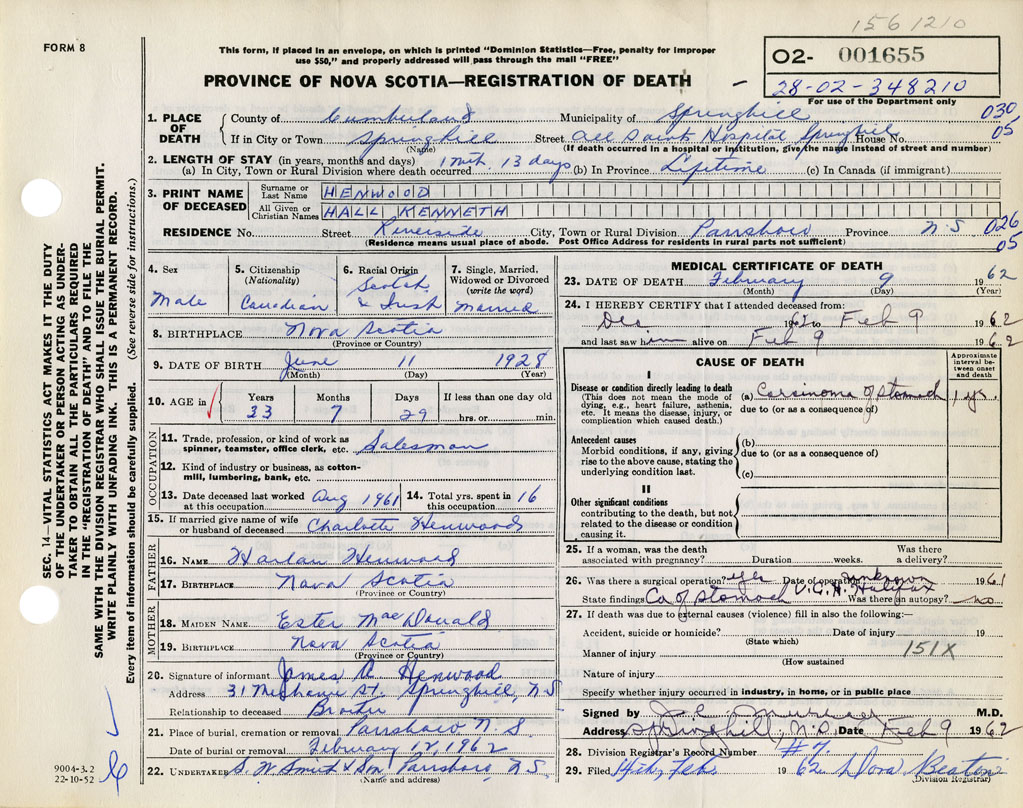 156 1210
FORM 8
This form, if placed in an envelope, on which is printed "Dominion Statistics—Free, penalty for improper
use $50," and properly addressed will pass through the mail "FREE"
PROVINCE OF NOVA SCOTIA—REGISTRATION OF DEATH
02- 001655
28-02-348210
For use of the Department only
1. PLACE OF DEATH
County of Cumberland Municipality of Springhill 030
If in City or Town Springhill Street All Saints Hospital Springhill House No. 05
(Name) (If death occurred in a hospital or institution, give the name instead of street and number)
2. LENGTH OF STAY (in years, months and days) 1 mth 13 days
(a) In City, Town or Rural Division where death occurred (b) In Province Lifetime (c) In Canada (if immigrant)
3. PRINT NAME OF DECEASED
Surname or Last Name HENWOOD
All Given or Christian Names HALL KENNETH
RESIDENCE No. Street Riverside City, Town or Rural Division Parrsboro Province N S 026
(Residence means usual place of abode. Post Office Address for residents in rural parts not sufficient) 05
4. Sex
Male
5. Citizenship
(Nationality)
Canadian
6. Racial Origin
Scotch
& Irish
7. Single, Married,
Widowed or Divorced
(write the word)
Married
8. BIRTHPLACE Nova Scotia
(Province or Country)
9. DATE OF BIRTH June 11 1928
(Month) (Day) (Year)
10. AGE in
Years Months Days If less than one day old
33 7 29 hrs. or min.
OCCUPATION
11. Trade, profession, or kind of work as
spinner, teamster, office clerk, etc. Salesman
12. Kind of industry or business, as cotton-
mill, lumbering, bank, etc.
13. Date deceased last worked
at this occupation Aug 1961
14. Total yrs. spent in
this occupation 16
15. If married give name of wife
or husband of deceased Charlotte Henwood
FATHER
16. NAME Harlan Henwood
17. BIRTHPLACE Nova Scotia
(Province or Country)
MOTHER
18. MAIDEN NAME Ester MacDonald
19. BIRTHPLACE Nova Scotia
(Province or Country)
20. Signature of informant James Henwood
Address 31 Mechanic St. Springhill, N S
Relationship to deceased Brother
21. Place of burial, cremation or removal Parrsboro N. S.
Date of burial or removal February 12, 1962
22. UNDERTAKER S. W Smith & Son Parrsboro N S.
(Name and address)
MEDICAL CERTIFICATE OF DEATH
23. DATE OF DEATH February 9 1962
(Month) (Day) (Year)
24. I HEREBY CERTIFY that I attended deceased from:
Dec 1961 to Feb 9 1962
and last saw him alive on Feb 9 1962
CAUSE OF DEATH
Approximate
interval be-
tween onset
and death
I
Disease or condition directly leading to death
(This does not mean the mode of
dying, e.g., heart failure, asthenia,
etc. It means the disease, injury, or
complication which caused death.)
(a) Carsinoma of stomach 1 yr.
due to (or as a consequence of)
Antecedent causes
Morbid conditions, if any, giving
rise to the above cause, stating the
underlying condition last.
(b)
due to (or as a consequence of)
(c)
II
Other significant conditions
contributing to the death, but not
related to the disease or condition
causing it.
25. If a woman, was the death
associated with pregnancy? Duration weeks. Was there
a delivery?
26. Was there a surgical operation? yes Date of operation unknown 1961
V.G.H. Halifax
State findings Ca of stomach Was there an autopsy? no
27. If death was due to external causes (violence) fill in also the following:—
Accident, suicide or homicide? Date of injury 19
(State which)
Manner of injury 151X
(How sustained
Nature of injury
Specify whether injury occurred in industry, in home, or in public place
Signed by M.D.
Address Springhill, N.S. Date Feb 9 1962
28. Division Registrar's Record Number #7.
29. Filed 14th, Feb. 1962 Dora Beaton
(Division Registrar)
SEC. 14—VITAL STATISTICS ACT MAKES IT THE DUTY
OF THE UNDERTAKER OR PERSON ACTING AS UNDER-
TAKER TO OBTAIN ALL THE PARTICULARS REQUIRED
IN THE "REGISTRATION OF DEATH" AND TO FILE THE
SAME WITH THE DIVISION REGISTRAR WHO SHALL ISSUE THE BURIAL PERMIT.
WRITE PLAINLY WITH UNFADING INK. THIS IS A PERMANENT RECORD.
Every item of information should be carefully supplied. (See reverse side for instructions.)
9004-3.2
22-10-52